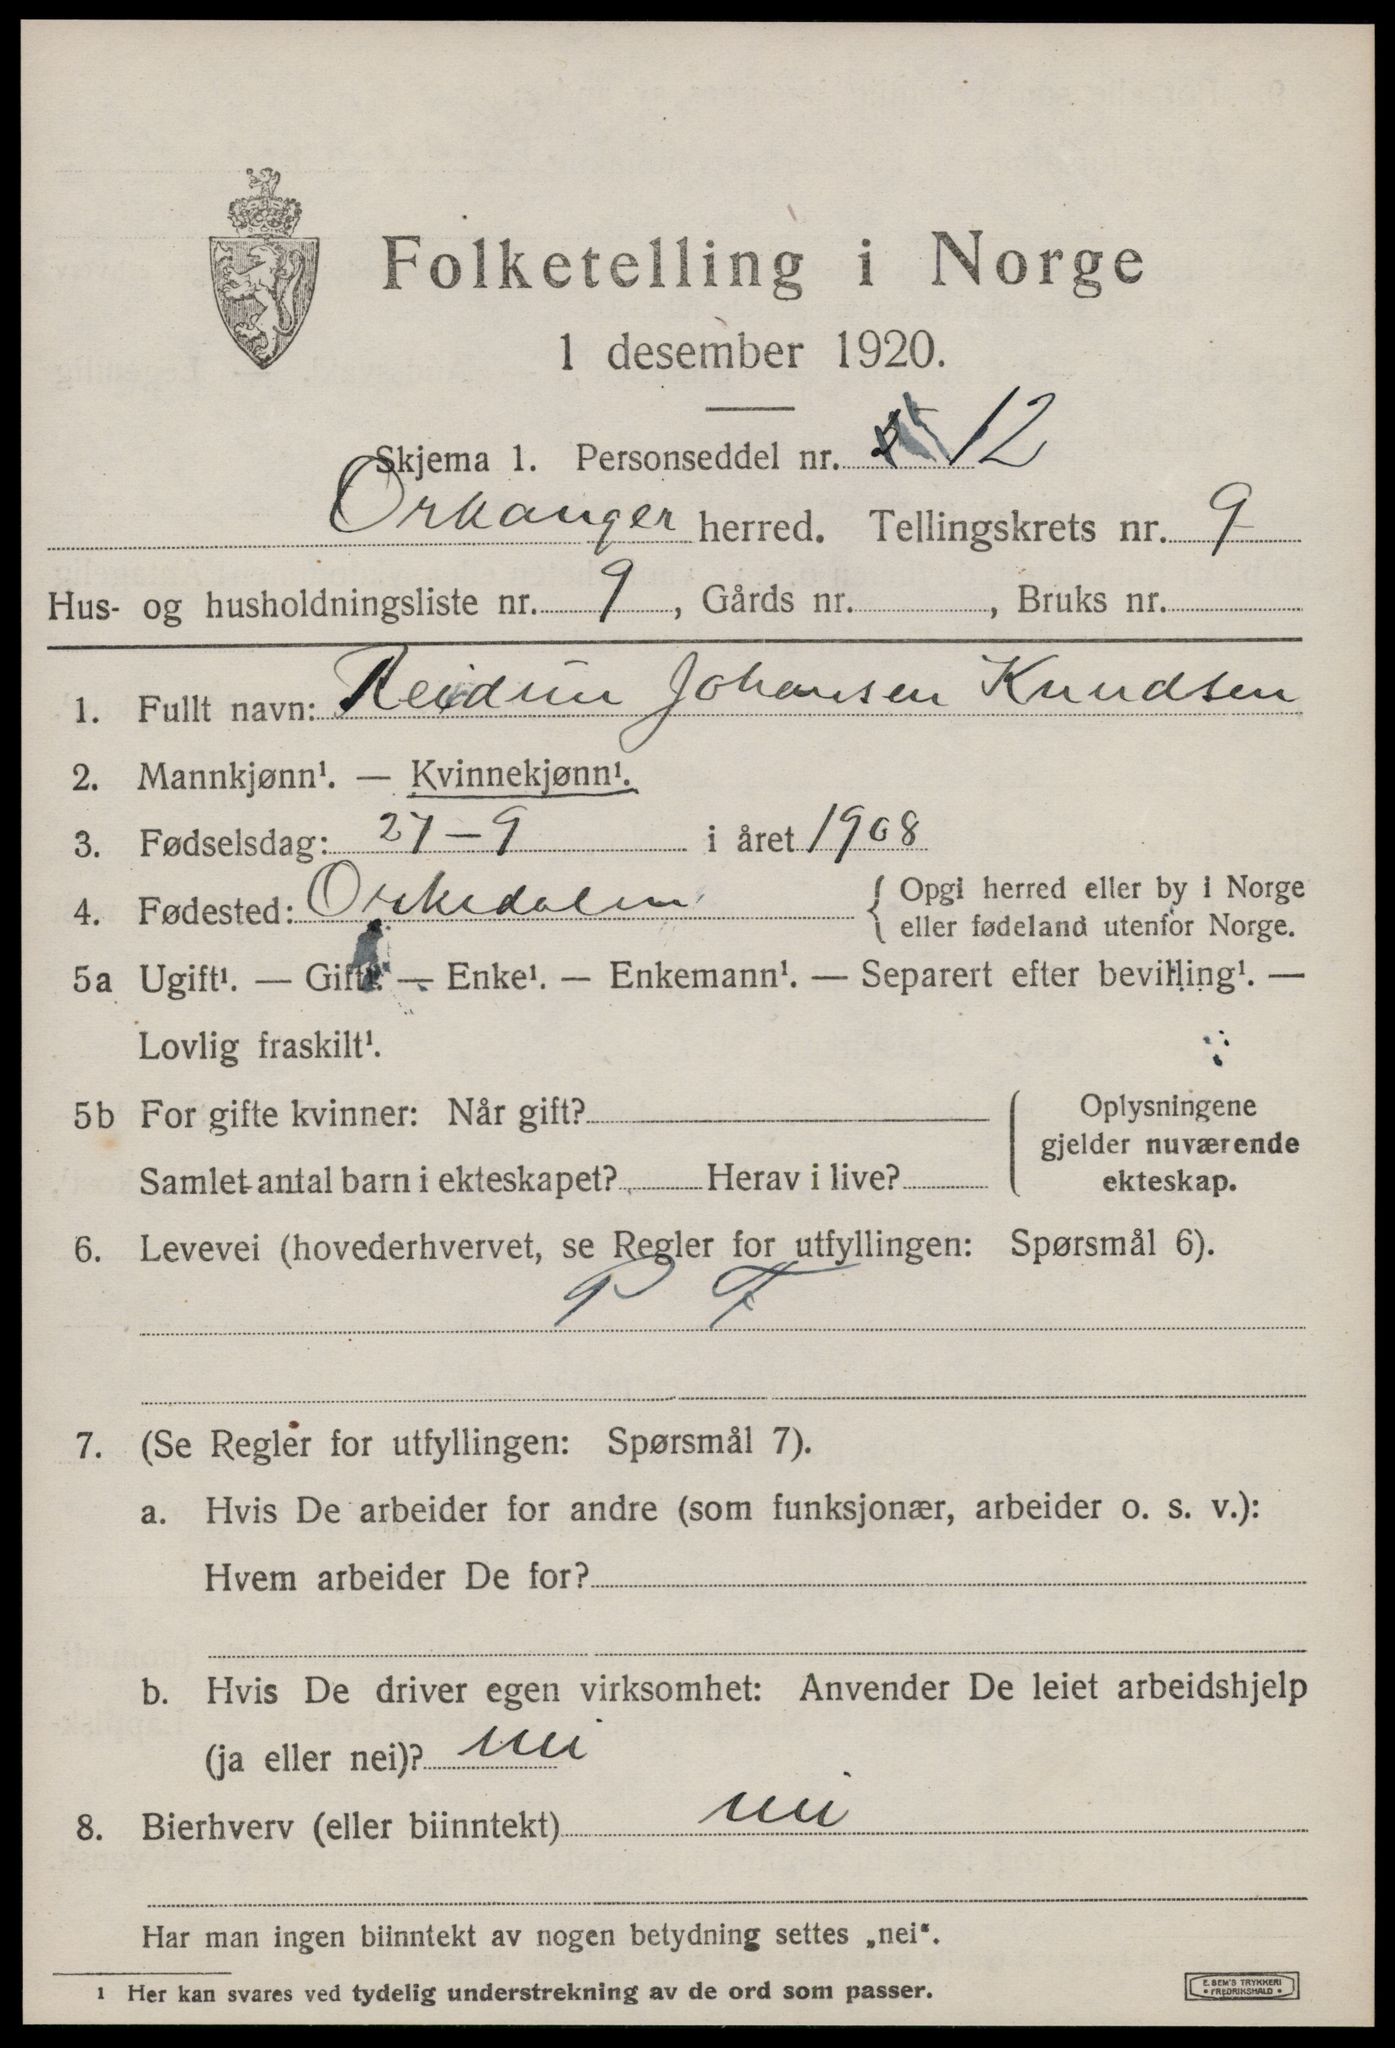 Folketelling i Norge
1 desember 1920.
Skjema 1. Personseddel nr. 12
Orkanger herred. Tellingskrets nr. 9
Hus- og husholdningsliste nr. 9, Gårds nr. , Bruks nr.
1. Fullt navn: Reidun Johansen Knudsen
2. Mannkjønn¹. — Kvinnekjønn¹.
3. Fødselsdag: 27-9 i året 1908
4. Fødested: Orkedalen { Opgi herred eller by i Norge
eller fødeland utenfor Norge.
5a Ugift¹. — Gift¹. — Enke¹. — Enkemann¹. — Separert efter bevilling¹. —
Lovlig fraskilt¹.
5b For gifte kvinner: Når gift?
Samlet antal barn i ekteskapet? Herav i live?
Oplysningene
gjelder nuværende
ekteskap.
6. Levevei (hovederhvervet, se Regler for utfyllingen: Spørsmål 6).
P F
7. (Se Regler for utfyllingen: Spørsmål 7).
a. Hvis De arbeider for andre (som funksjonær, arbeider o. s. v.):
Hvem arbeider De for?
b. Hvis De driver egen virksomhet: Anvender De leiet arbeidshjelp
(ja eller nei)? nei
8. Bierhverv (eller biinntekt) nei
Har man ingen biinntekt av nogen betydning settes „nei“.
1 Her kan svares ved tydelig understrekning av de ord som passer.
E. SEM'S TRYKKERI
• FREDRIKSHALD •